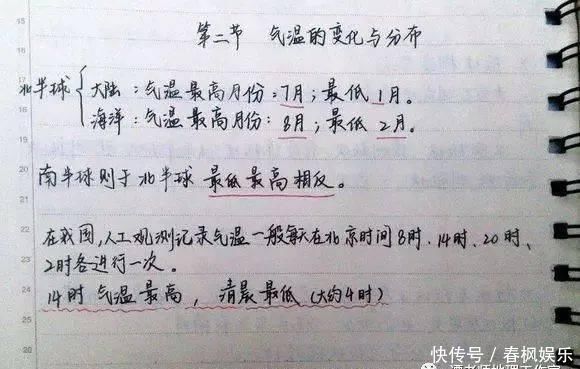 第二节 气温的变化与分布
北半球 { 大陆:气温最高月份:7月;最低1月。
海洋:气温最高月份:8月;最低2月。
南半球则于北半球 最低最高相反。
在我国,人工观测记录气温一般每天在北京时间8时、14时、20时、
2时各进行一次。
14时气温最高,清晨最低(大约4时)
快传号/春枫娱乐